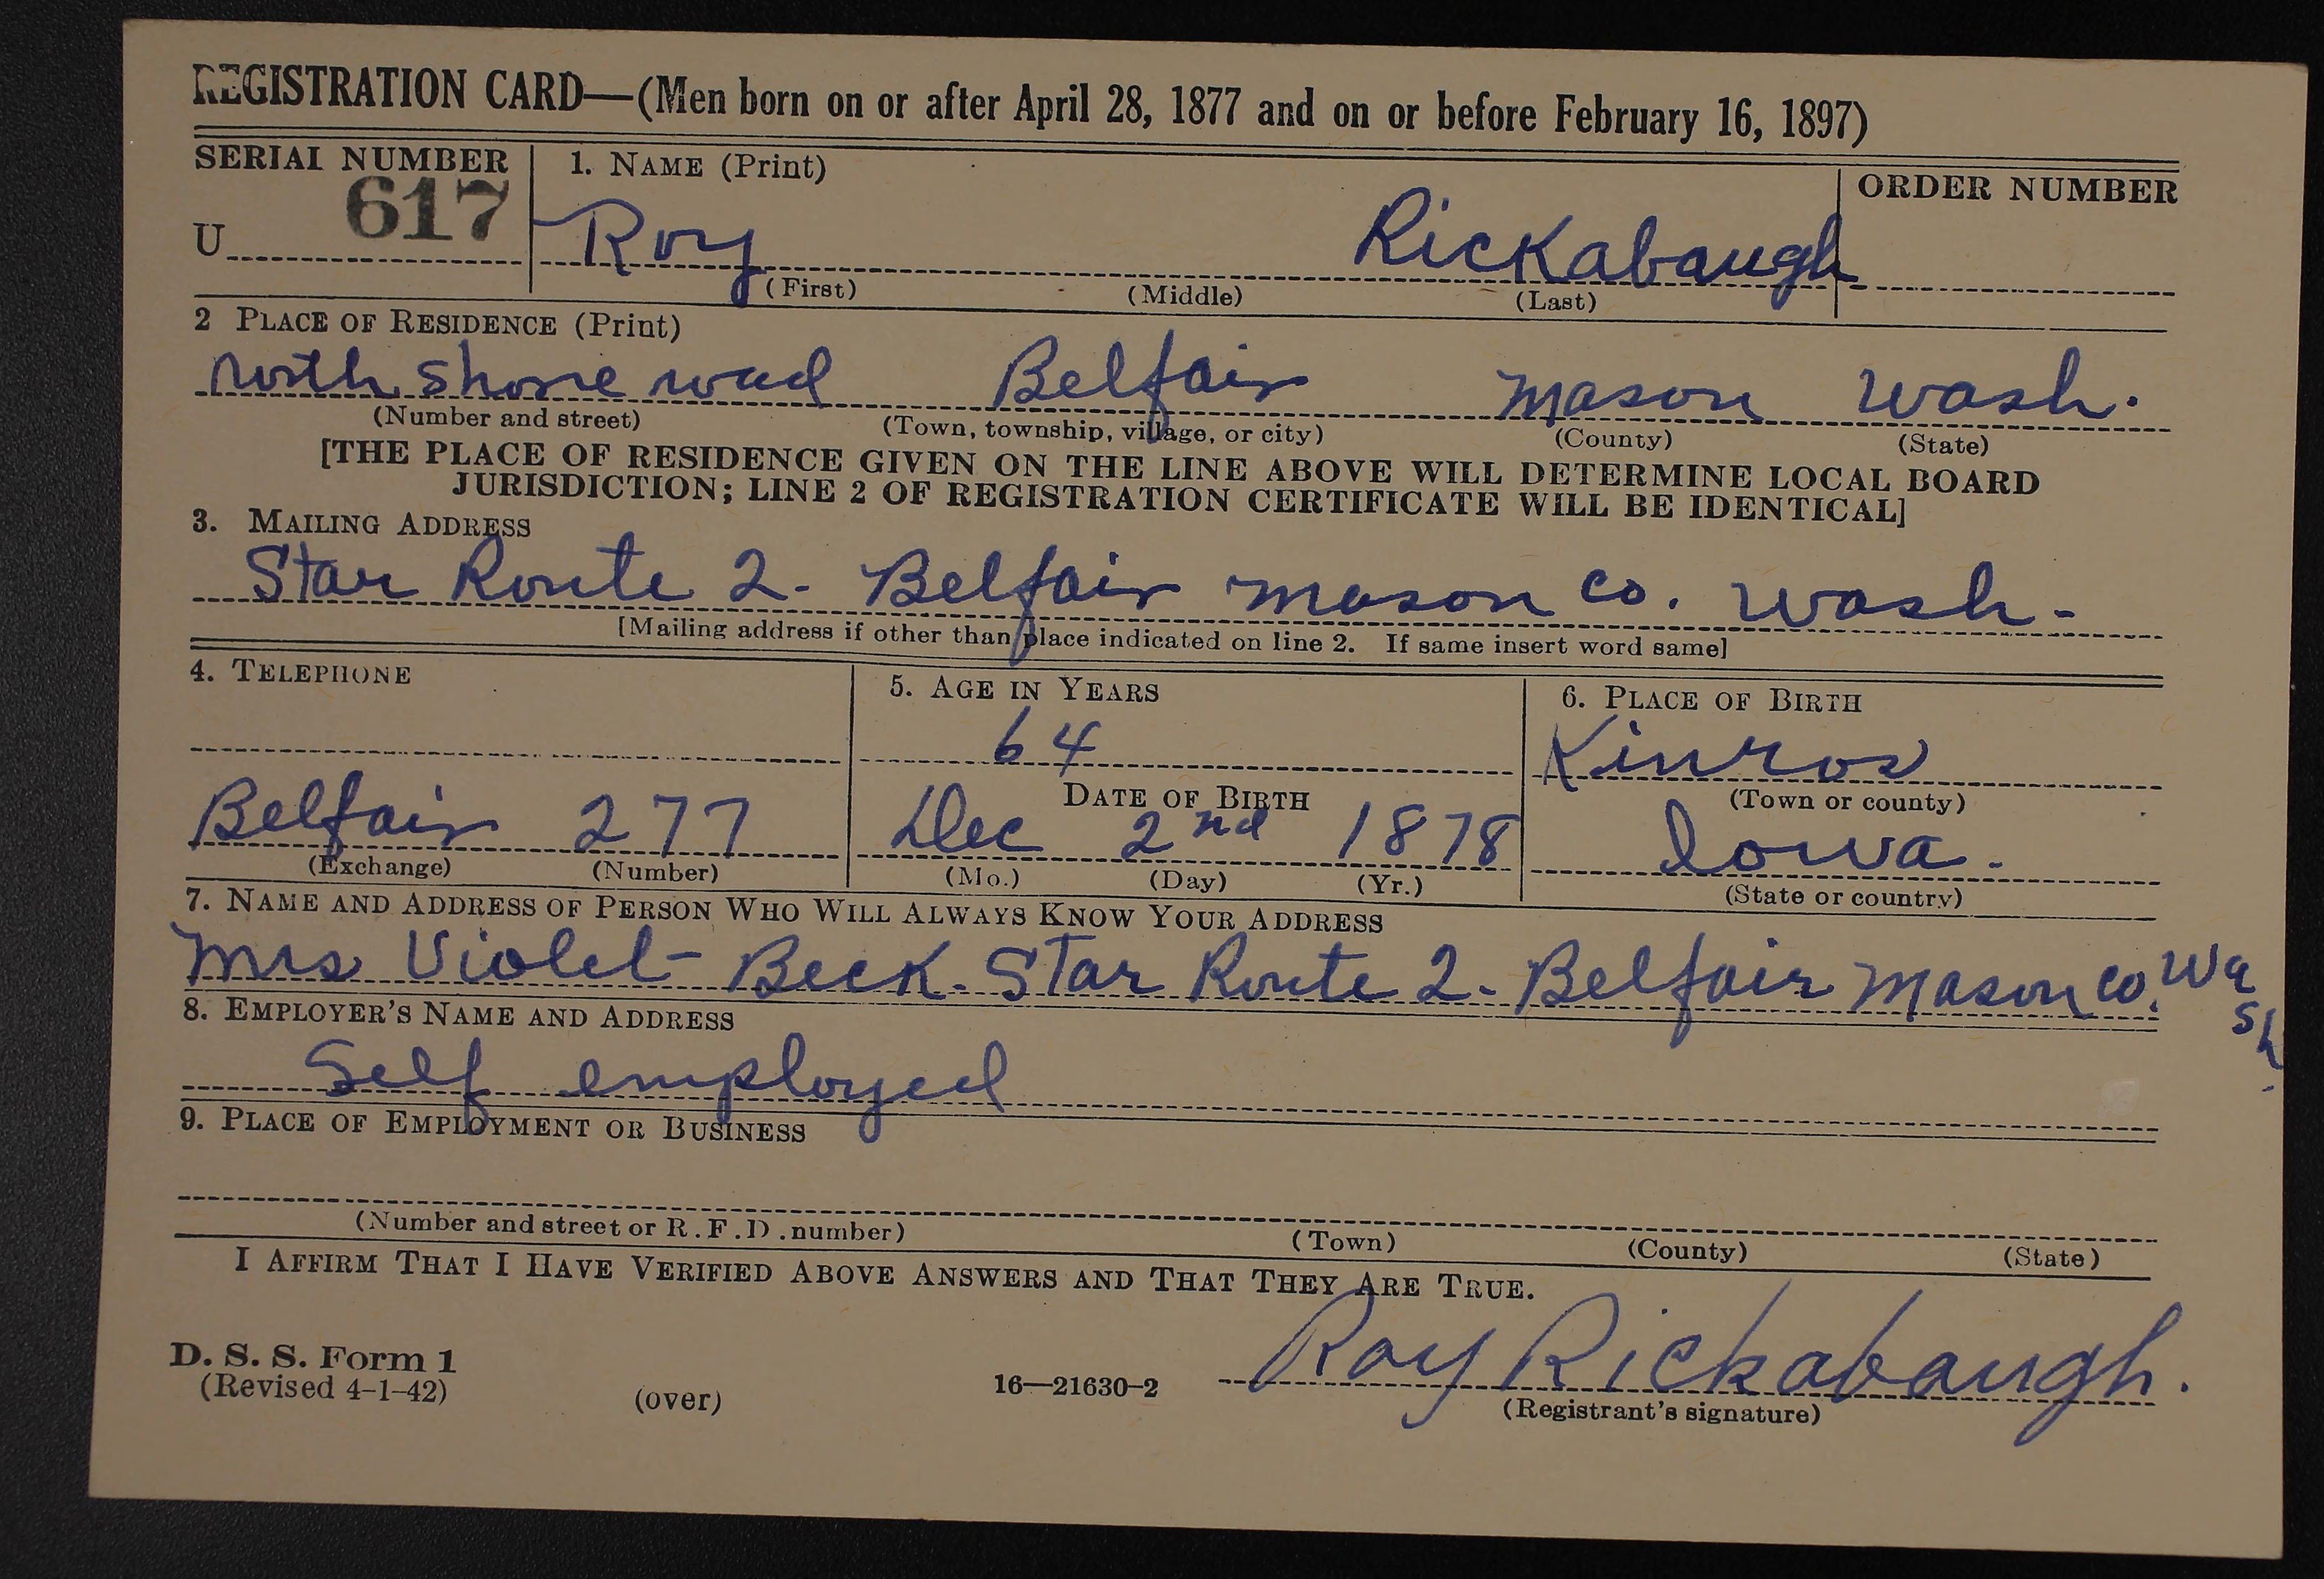 REGISTRATION CARD—(Men born on or after April 28, 1877 and on or before February 16, 1897)
SERIAL NUMBER 1. NAME (Print) ORDER NUMBER
U 617 Roy Rickabaugh
(First) (Middle) (Last)
2 PLACE OF RESIDENCE (Print)
North Shore road Belfair Mason Wash.
(Number and street) (Town, township, village, or city) (County) (State)
[THE PLACE OF RESIDENCE GIVEN ON THE LINE ABOVE WILL DETERMINE LOCAL BOARD
JURISDICTION; LINE 2 OF REGISTRATION CERTIFICATE WILL BE IDENTICAL]
3. MAILING ADDRESS
Star Route 2. Belfair Mason Co. Wash-
[Mailing address if other than place indicated on line 2. If same insert word same]
4. TELEPHONE 5. AGE IN YEARS 6. PLACE OF BIRTH
64 Kinros
DATE OF BIRTH (Town or county)
Belfair 277 Dec 2nd 1878 Iowa.
(Exchange) (Number) (Mo.) (Day) (Yr.) (State or country)
7. NAME AND ADDRESS OF PERSON WHO WILL ALWAYS KNOW YOUR ADDRESS
Mrs Violet- Beck. Star Route 2. Belfair Mason Co. Wash.
8. EMPLOYER'S NAME AND ADDRESS
Self employed
9. PLACE OF EMPLOYMENT OR BUSINESS
(Number and street or R.F.D. number) (Town) (County) (State)
I AFFIRM THAT I HAVE VERIFIED ABOVE ANSWERS AND THAT THEY ARE TRUE.
D. S. S. Form 1 Roy Rickabaugh.
(Revised 4-1-42) (over) 16—21630-2 (Registrant's signature)